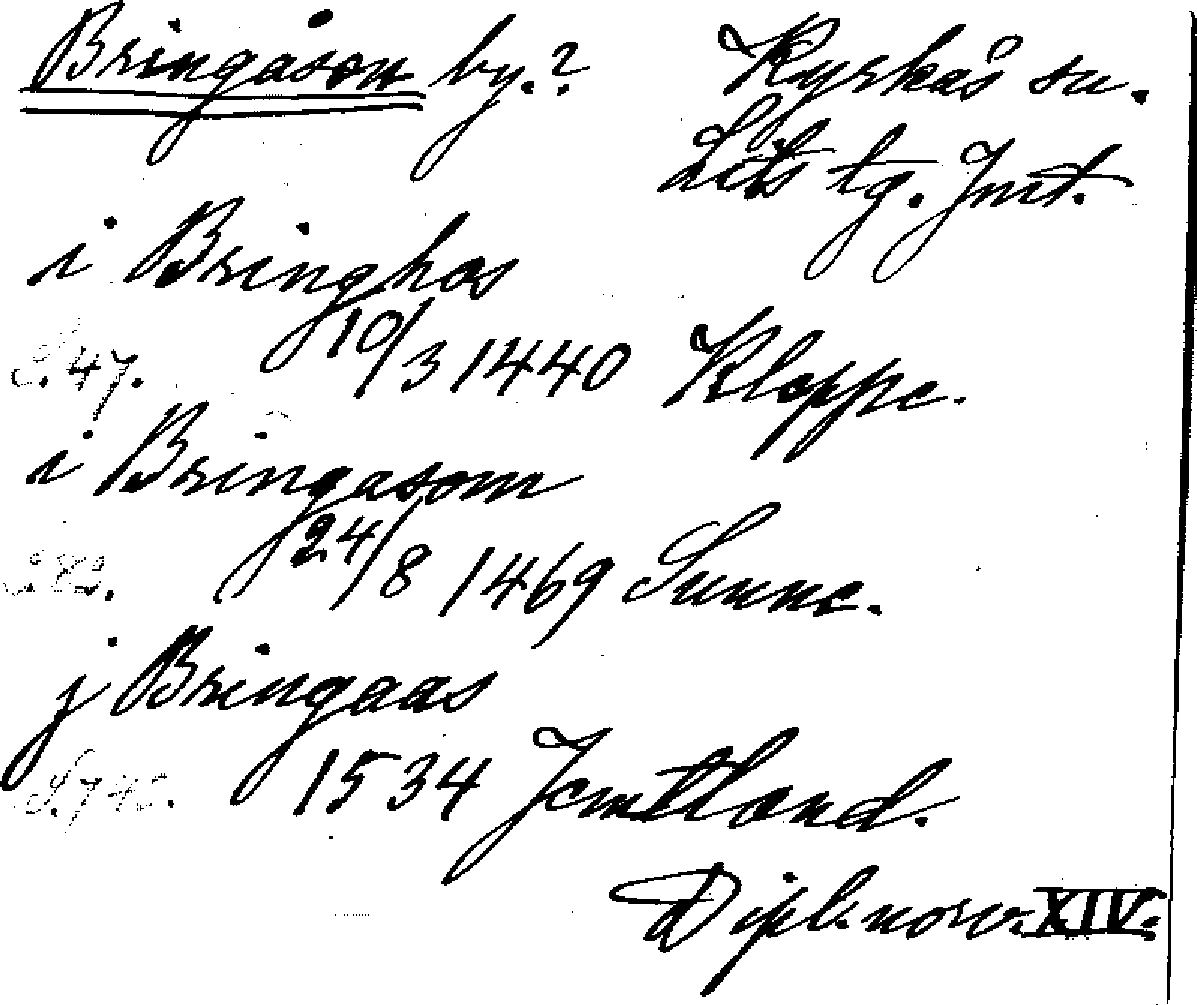 Bringåson by.? Kyrkås sn.
Lits tg. Jmt.
i Bringhas
S. 47. 10/3 1440 Kloppe.
i Bringasom
24/8 1469 Sunne.
j Bringaas
1534 Jemtland.
Dipl. norv. XIV.